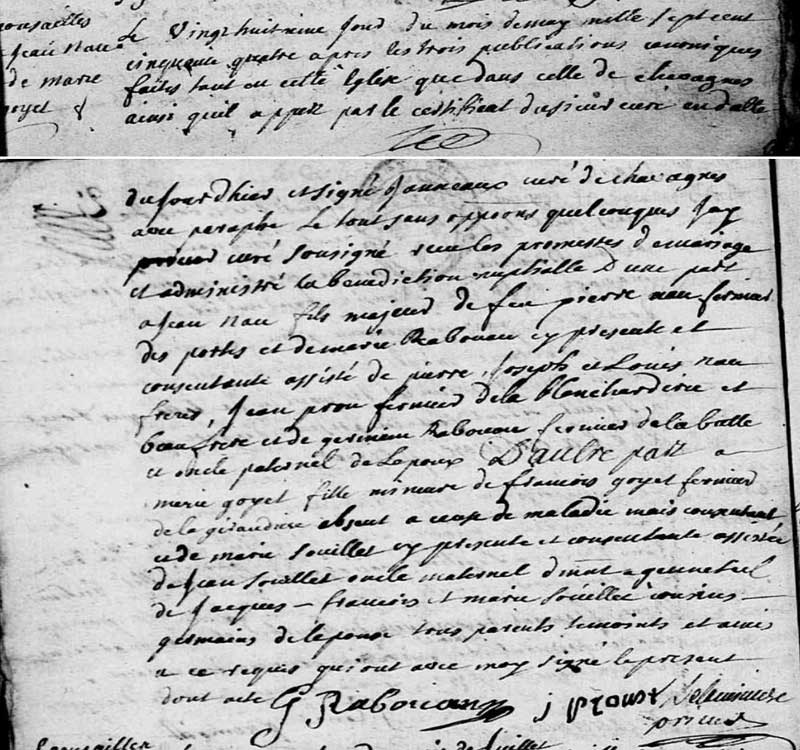 Epousailles
de Jean Nau
de marie
goyet &
Le vingt huitieme jour du mois de may mille sept cent
cinquante quatre apres les trois publications canoniques
faites tant en cette Eglise que dans celle de chavagnes
ainsi quil appert par le certificat du sieur curé en datte
du jour dhier et signé Janneaux curé de chavagnes
avec paraphe le tout sans oppons quelconques Jay
prieur curé sousigné receu les promesses de mariage
et administré la benediction nuptialle D'une part
a Jean nau fils majeur de feu pierre nau fermier
des portes et de marie Rabouan cy presente et
consentante assisté de pierre, Joseph et Louis nau
freres, Jean prou fermier de la blancharderie et
beaufrere et de germain Rabouan fermier de la
et oncle paternel de Lepoux D'autre part a
marie goyet fille mineure de francois goyet fermier
de la girardiere absent a cause de maladie mais consentant
et de marie Souillet cy presente et consentante assistée
de Jean Souillet oncle maternel
de Jacques - francois et marie Souillet cousins -
germains de lepouse tous parents temoints et amis
a ce requis qui ont avec moy signé le present
dont acte G Rabouan J proust
prieur
Epousailles
de Juillet